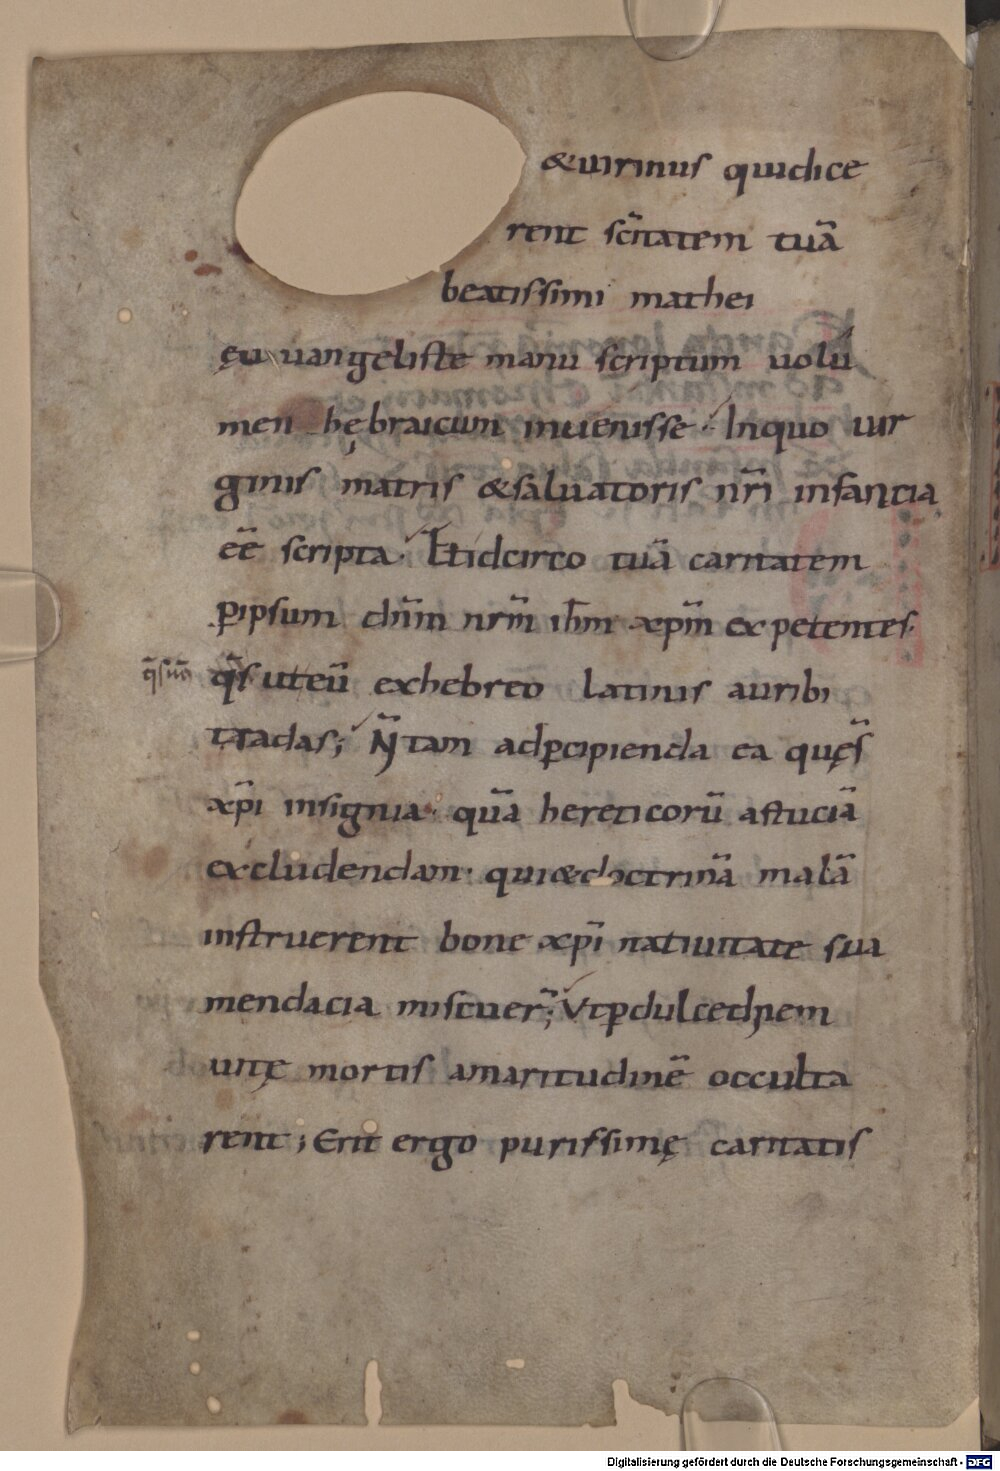 & uirinus qui dice
rent sc̄itatem tuā
beatissimi mathei
ęu uangeliste manu scriptum uolū
men hębraicum inuenisse. In quo uir
ginis matris & saluatoris nr̄i infantia
eē scripta. Et idcirco tuā caritatem
ꝑ ipsum dn̄m nr̄m ih̄m xp̄m expetentes.
q̄s ut eū ex hebreo latinis auribi
tradas; N̄ tam ad ꝑcipienda ea quę s̄
xp̄i insignia. quā hereticorū astuciā
excludendam. qui æ doctrinā malā
instruerent bone xp̄i natiuitate sua
mendacia miscuer̄; Vt ꝑ dulcedinem
uitę mortis amaritudinē occulta
rent; Erit ergo purissimę caritatis
Digitalisierung gefördert durch die Deutsche Forschungsgemeinschaft - DFG